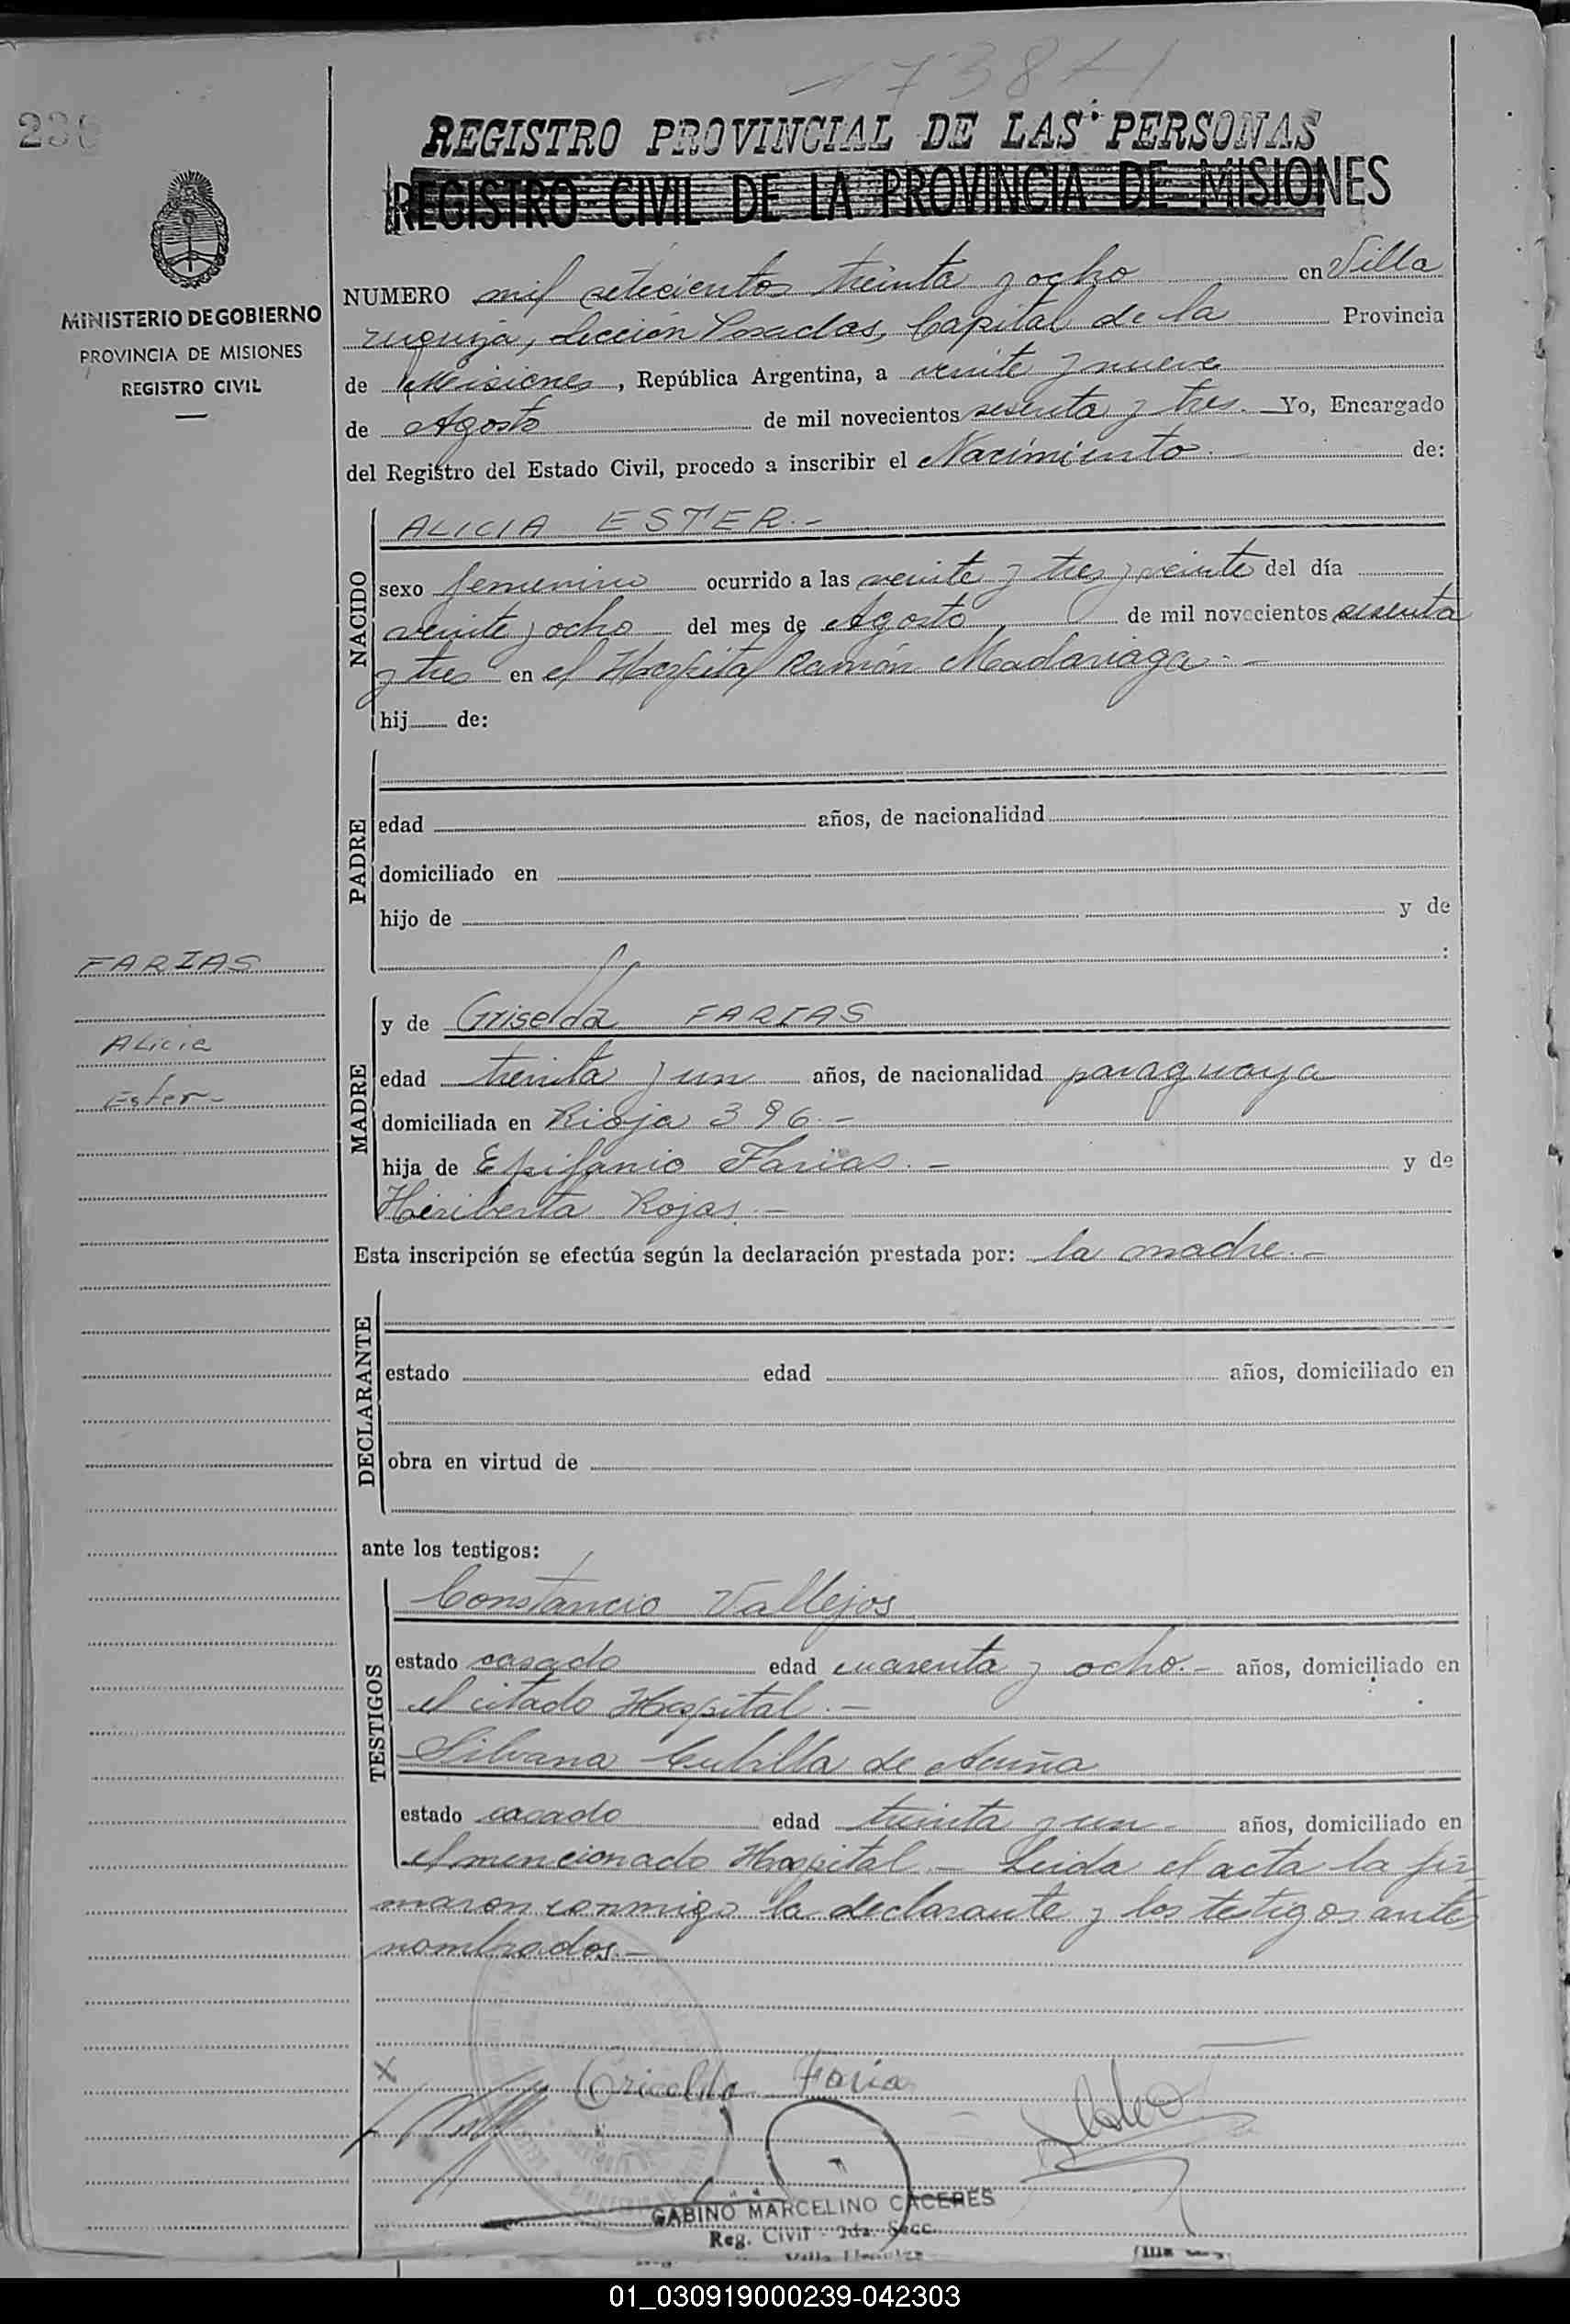 1738
REGISTRO PROVINCIAL DE LAS PERSONAS
REGISTRO CIVIL DE LA PROVINCIA DE MISIONES
MINISTERIO DE GOBIERNO
PROVINCIA DE MISIONES
REGISTRO CIVIL
NUMERO mil setecientos treinta y ocho en Villa
Urquiza, Sección Posadas, Capital de la Provincia
de Misiones, República Argentina, a veinte y nueve
de Agosto de mil novecientos sesenta y tres. Yo, Encargado
del Registro del Estado Civil, procedo a inscribir el Nacimiento.- de:
NACIDO
ALICIA ESTER.-
sexo femenino ocurrido a las veinte y tres y veinte del día
veinte y ocho del mes de Agosto de mil novecientos sesenta
y tres en el Hospital Ramón Madariaga.-
hij de:
PADRE
edad años, de nacionalidad
domiciliado en
hijo de y de
:
FARIAS
Alicia
Ester-
MADRE
y de Griselda FARIAS
edad treinta y un años, de nacionalidad paraguaya
domiciliada en Rioja 396.-
hija de Epifanio Farias.- y de
Heriberta Rojas.-
Esta inscripción se efectúa según la declaración prestada por: la madre.-
DECLARANTE
estado edad años, domiciliado en
obra en virtud de
ante los testigos:
TESTIGOS
Constancio Vallejos
estado casado edad cuarenta y ocho.- años, domiciliado en
el citado Hospital.-
Silvana Cubilla de Acuña
estado casado edad treinta y un - años, domiciliado en
el mencionado Hospital.- Leida el acta la fir
maron conmigo la declarante y los testigos antes
nombrados.-
x Griselda Farias
GABINO MARCELINO CACERES
Reg. Civil 2da. Secc.
01_030919000239-042303